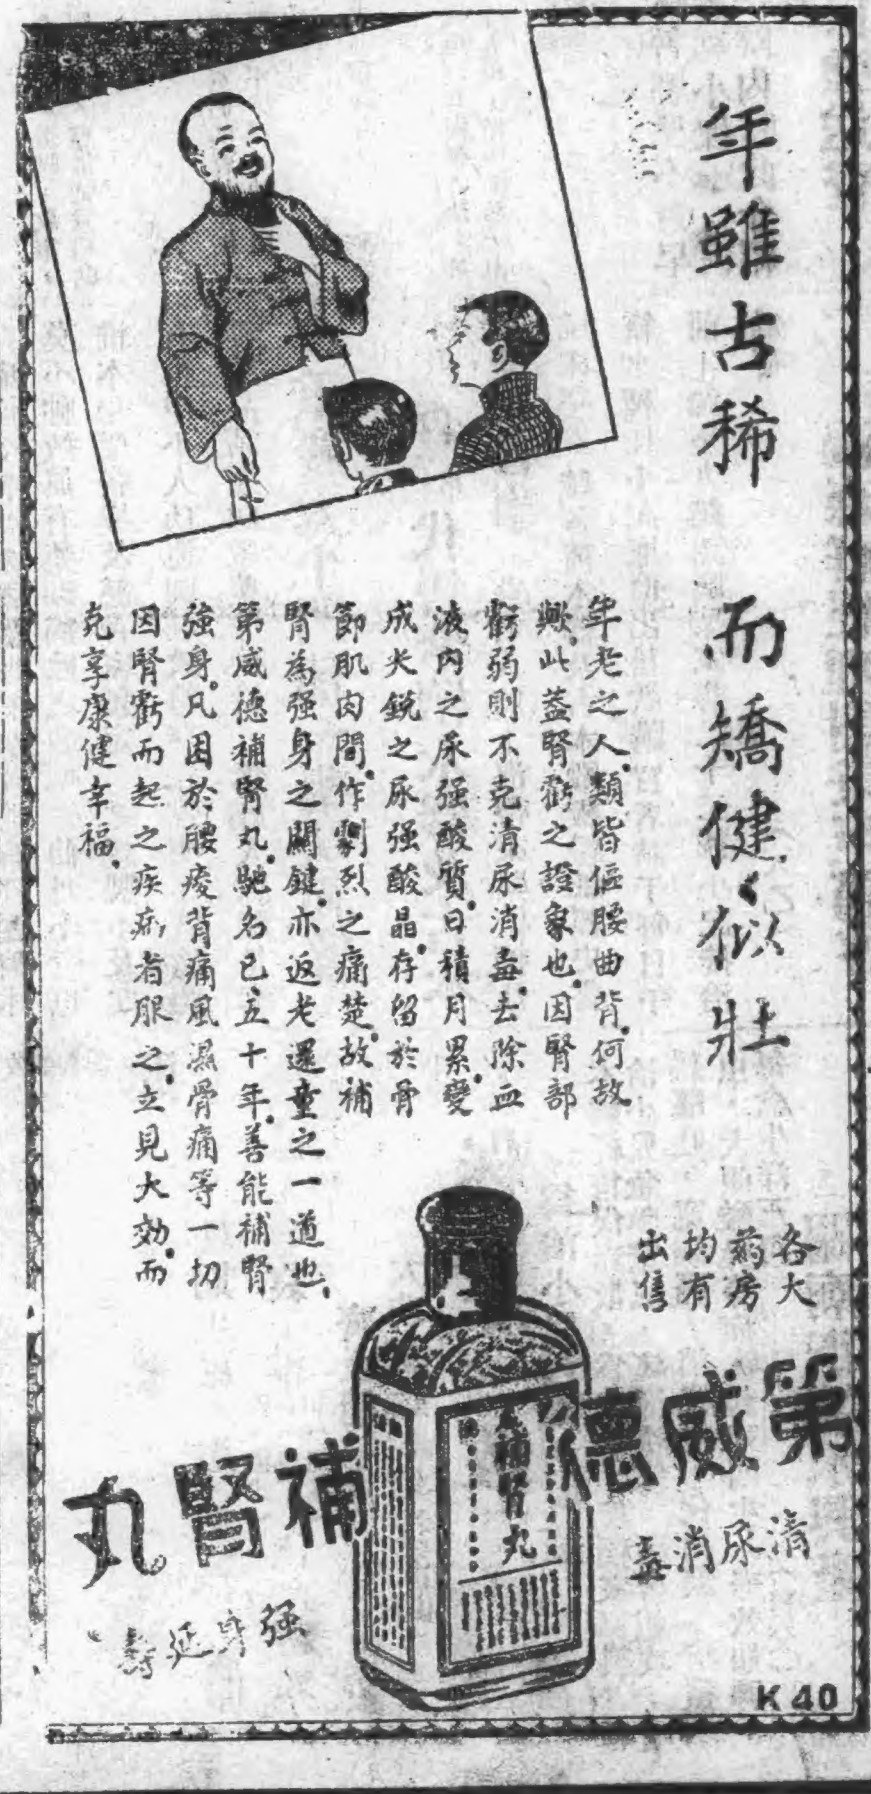 年雖古稀
而矯健似壯
年老之人、類皆傴腰曲背、何故
歟、此蓋腎虧之證象也、因腎部
虧弱則不克清尿消毒、去除血
液內之尿强酸質、日積月累、變
成尖銳之尿强酸晶、存留於骨
節肌肉間、作劇烈之痛楚、故補
腎為强身之關鍵、亦返老還童之一道也、
第威德補腎丸、馳名已五十年、善能補腎
強身、凡因於腰痠背痛風濕骨痛等一切
因腎虧而起之疾病者服之、立見大効、而
克享康健幸福、
各大
葯房
均有
出售
第威德
補腎丸
清尿消毒
强身延壽
補腎丸
K 40